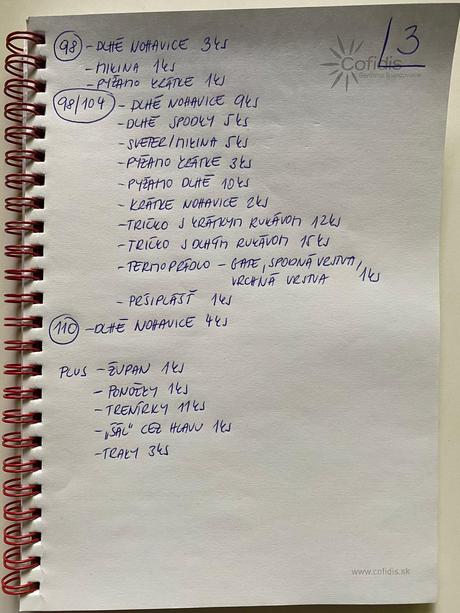 L3
Cofidis
98 - DLHÉ NOHAVICE 3KS
- MIKINA 1KS
- PYŽAMO KRÁTKE 1KS
98/104 - DLHÉ NOHAVICE 9KS
- DLHÉ SPODKY 5KS
- SVETER/MIKINA 5KS
- PYŽAMO KRÁTKE 3KS
- PYŽAMO DLHÉ 10KS
- KRÁTKE NOHAVICE 2KS
- TRIČKO S KRÁTKYM RUKÁVOM 12KS
- TRIČKO S DLHÝM RUKÁVOM 15KS
- TERMOPRÁDLO - GATE, SPODNÁ VRSTVA,
VRCHNÁ VRSTVA 1KS
- PRŠIPLÁŠŤ 1KS
110 - DLHÉ NOHAVICE 4KS
PLUS - ŽUPAN 1KS
- PONOŽKY 1KS
- TRENÍRKY 11KS
- „ŠÁL" CEZ HLAVU 1KS
- TRAKY 3KS
www.cofidis.sk